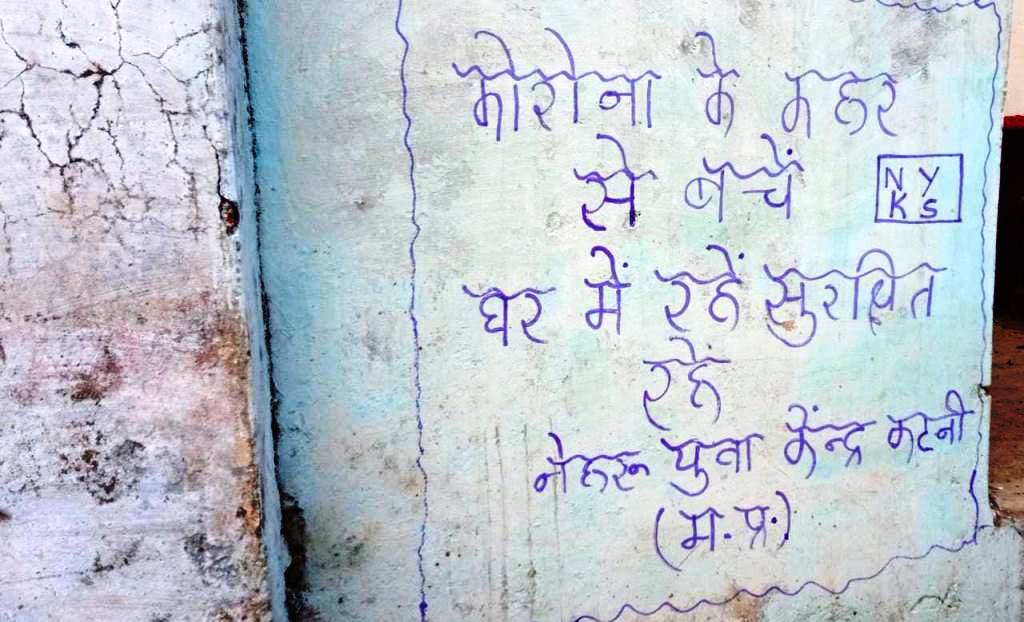 कोरोना के कहर
से बचें
N Y
K S
घर में रहें सुरक्षित
रहें
नेहरू युवा केंन्द्र कटनी
(म. प्र.)